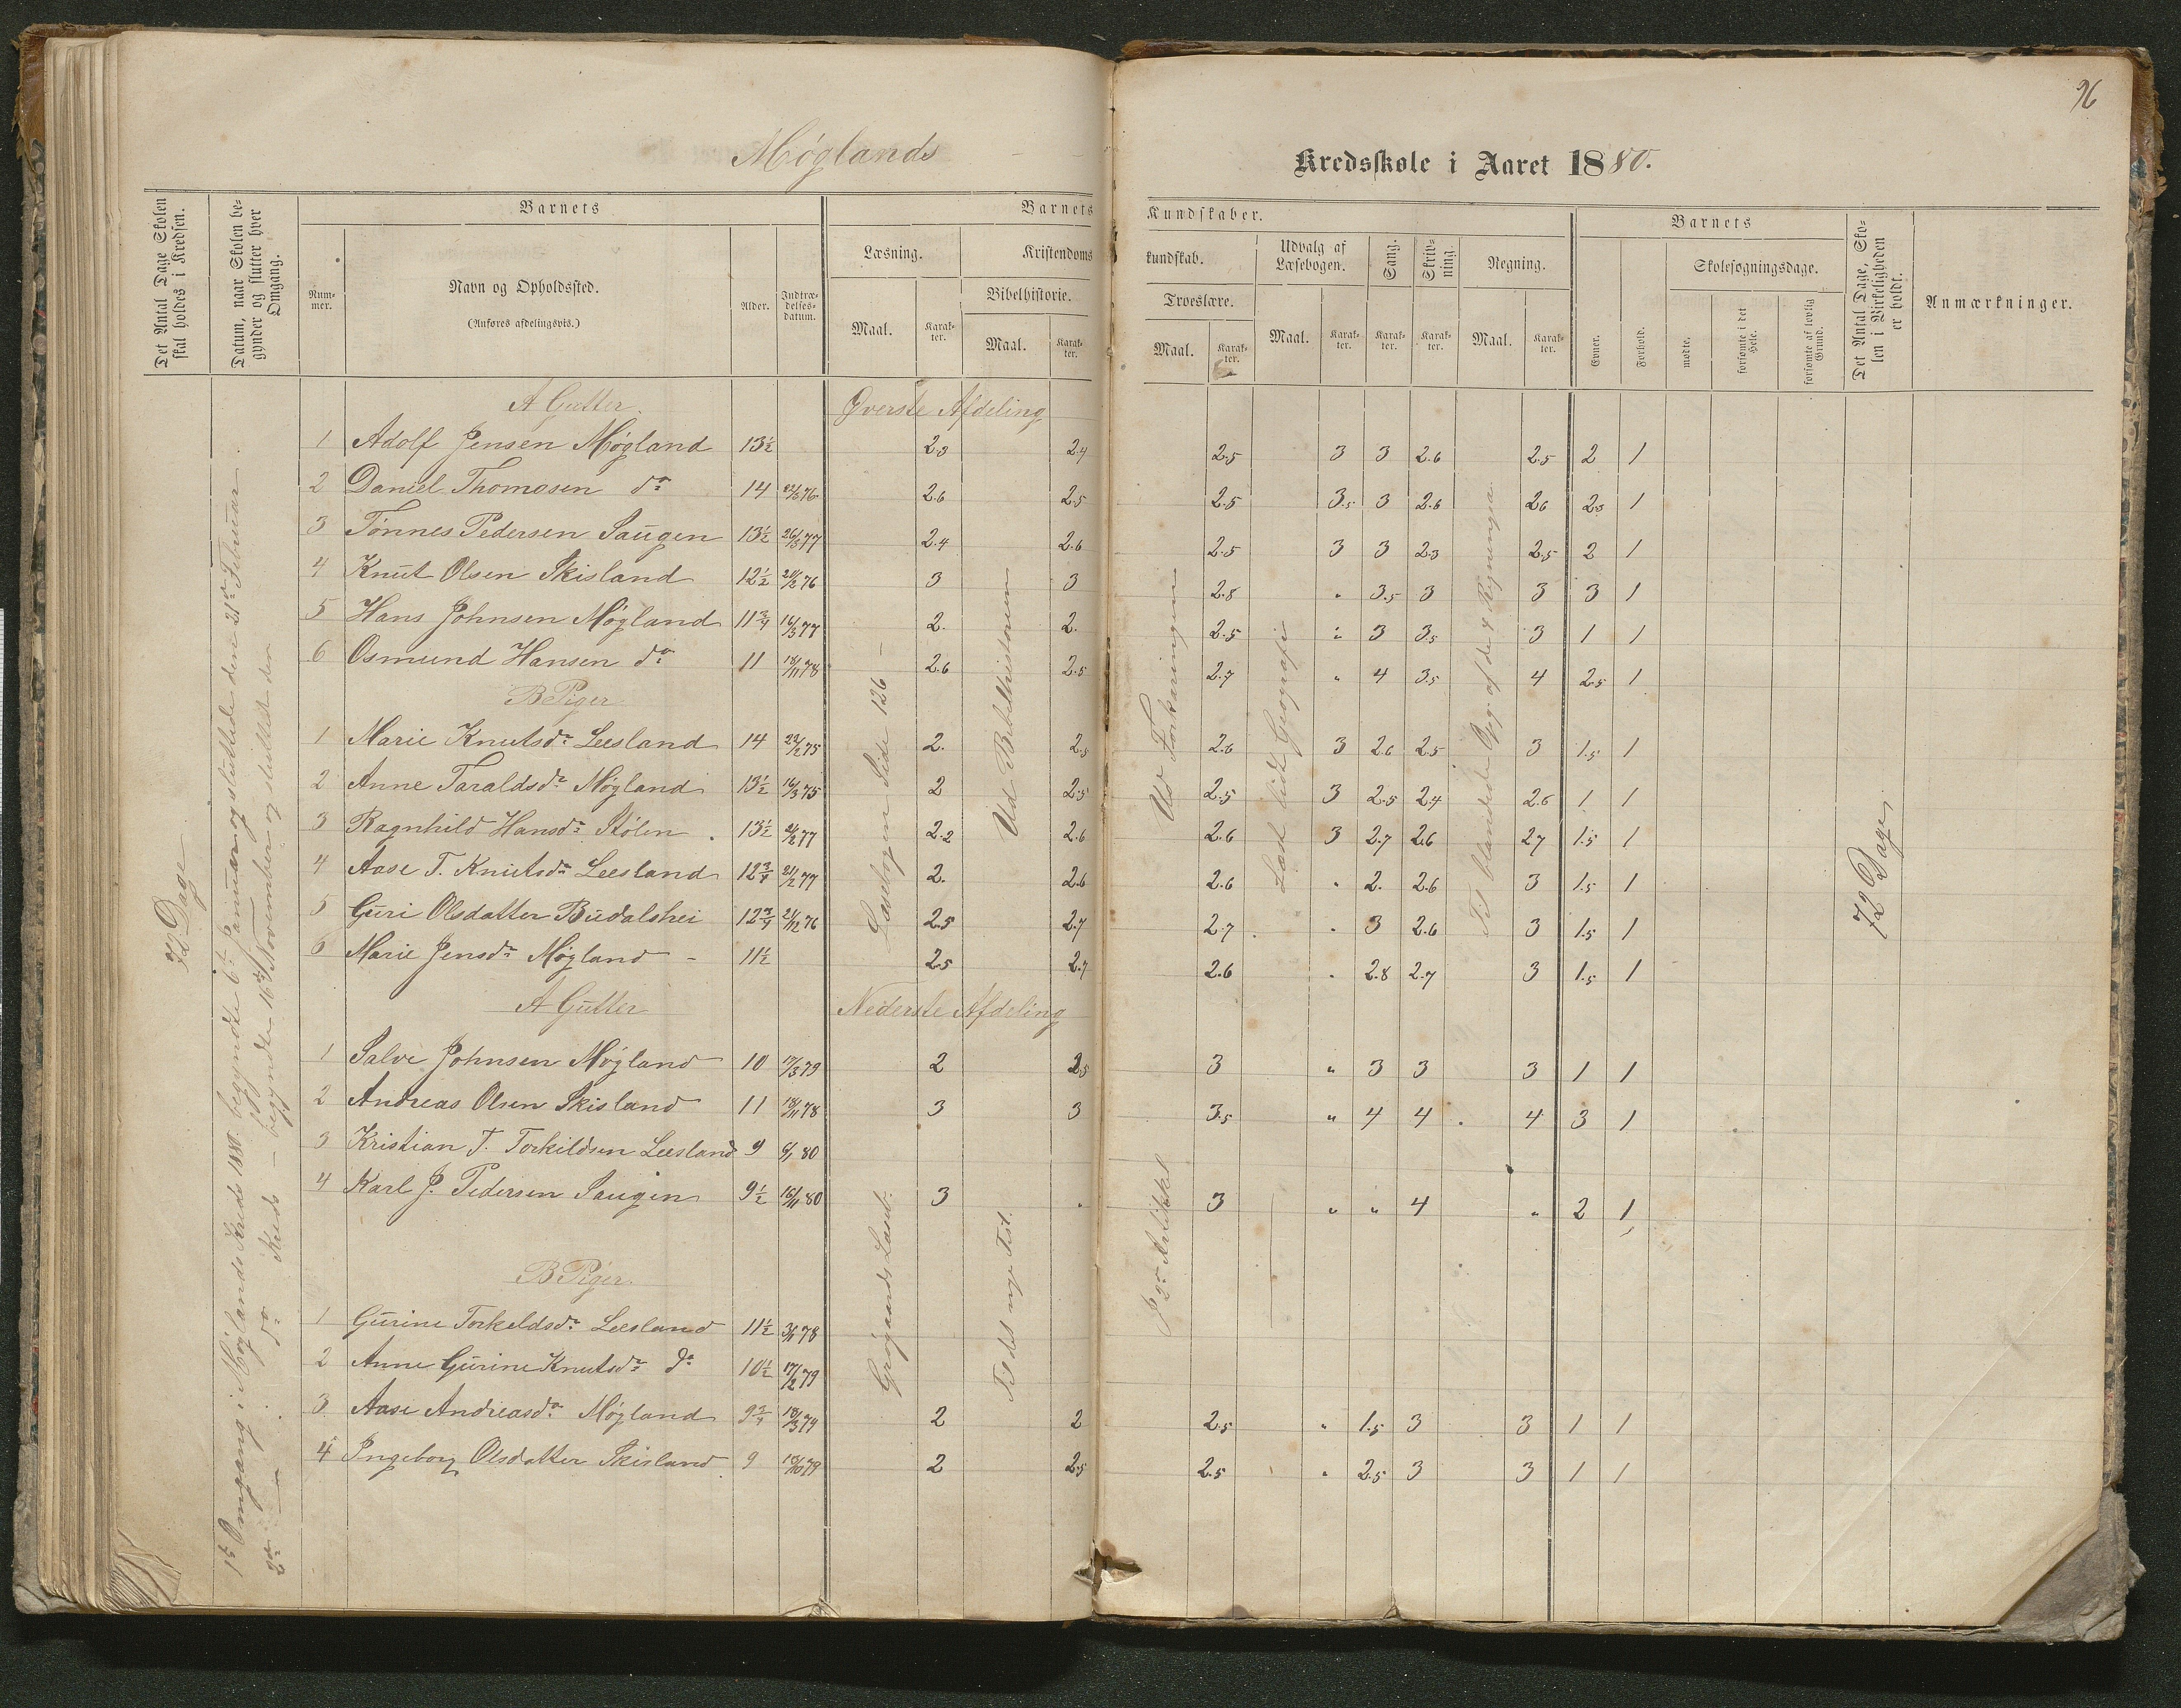 96
Møglands Kredsskole i Aaret 1880.
Det Antal Dage Skolen skal holdes i Kredsen.
Datum, naar Skolen begynder og slutter hver Omgang.
Barnets
Nummer.
Navn og Opholdssted.
(Anføres afdelingsvis.)
Alder.
Indtrædelsesdatum.
Barnets Kundskaber.
Læsning.
Maal.
Karakter.
Kristendomskundskab.
Bibelhistorie.
Maal.
Karakter.
Troeslære.
Maal.
Karakter.
Udvalg af Læsebogen.
Maal.
Karakter.
Sang.
Karakter.
Skrivning.
Karakter.
Regning.
Maal.
Karakter.
Barnets
Evner.
Forhold.
Skolesøgningsdage.
mødte.
forsømte i det Hele.
forsømte af lovlig Grund.
Det Antal Dage, Skolen i Virkeligheden er holdt.
Anmærkninger.
72 Dage
1ste Omgang i Møglands Kreds 1880 begyndte 6te Januar og sluttede den 21de Februar.
2den — do Kreds — begyndte 16de November og sluttede den
Læsebogen Side 126 —
Ud Bibelhistorien
Ud Forklaringen
Læst lidt Geografi
Til blandede Opg. af de 4 Regningsa.
72 Dage
A Gutter. Øverste Afdeling
1 Adolf Jensen Møgland 13½ 2.3 2.4 2.5 3 3 2.6 2.5 2 1
2 Daniel Thomasen do 14 76 2.6 2.5 2.5 3.5 3 2.6 2.6 2.3 1
3 Tønnes Pedersen Saugen 13½ 26/3 77 2.4 2.6 2.5 3 3 2.3 2.5 2 1
4 Knut Olsen Skisland 12½ 76 3 3 2.8 " 3.5 3 3 3 1
5 Hans Johnsen Møgland 11¾ 16/3 77 2. 2. 2.5 " 3 3.5 3 1 1
6 Osmund Hansen do 11 18/11 78 2.6 2.5 2.7 " 4 3.5 4 2.5 1
B Piger
1 Marie Knutsdr Leesland 14 22/2 75 2. 2.5 2.6 3 2.6 2.5 3 1.5 1
2 Anne Taraldsdr Møgland 13½ 16/3 75 2 2.5 2.5 3 2.5 2.4 2.6 1 1
3 Ragnhild Hansdr Stølen 13½ 77 2.2 2.6 2.6 3 2.7 2.6 2.7 1.5 1
4 Aase T. Knutsdr Leesland 12¾ 21/2 77 2. 2.6 2.6 " 2. 2.6 3 1.5 1
5 Guri Olsdatter Budalshei 12¾ 21/12 76 2.5 2.7 2.7 " 3 2.6 3 1.5 1
6 Marie Jensdr Møgland 11½ 2.5 2.7 2.6 " 2.8 2.7 3 1.5 1
A Gutter Nederste Afdeling
1 Salve Johnsen Møgland 10 17/3 79 2 2.5 3 " 3 3 3 1 1
2 Andreas Olsen Skisland 11 18/11 78 3 3 3.5 " 4 4 4 3 1
3 Kristian T. Torkildsen Leesland 9 6/1 80
4 Karl J. Pedersen Saugen 9½ 16/11 80 3 " 3 " " 4 " 2 1
Grøgaards Læseb.
Til det nye Test.
I 2den Artikkel
B Piger.
1 Gurine Torkeldsdr Leesland 11½ 78
2 Anne Gurine Knutsdr do 10½ 17/2 79
3 Aase Andreasdr Møgland 9¾ 18/3 79 2 2 2.5 " 1.5 3 3 1 1
4 Ingeborg Olsdatter Skisland 9 79 2 2.5 2.5 " 2.5 3 3 1 1